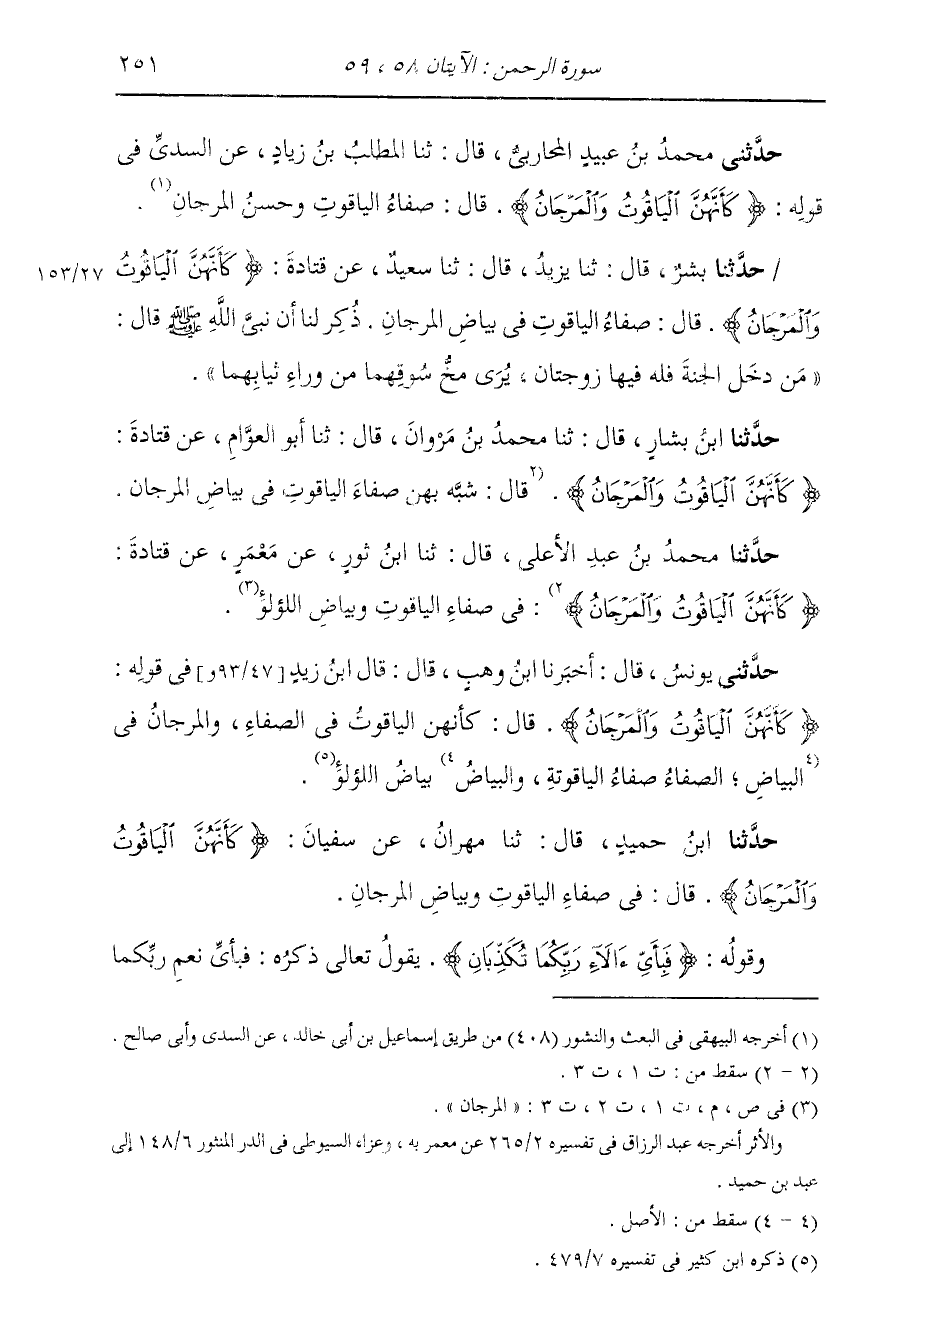 سورة الرحمن : الآيتان ٥٨ ، ٥٩
٢٥١
حدَّثنى محمدُ بنُ عبيدٍ المحاربىُّ ، قال : ثنا المطلبُ بنُ زيادٍ ، عن السدىِّ فى
قولِه : ﴿ كَأَنَّهُنَّ ٱلْيَاقُوتُ وَٱلْمَرْجَانُ ﴾ . قال : صفاءُ الياقوتِ وحسنُ المرجانِ(١) .
/ حدَّثنا بشرٌ ، قال : ثنا يزيدُ ، قال : ثنا سعيدٌ ، عن قتادةَ : ﴿ كَأَنَّهُنَّ ٱلْيَاقُوتُ ١٥٣/٢٧
وَٱلْمَرْجَانُ ﴾ . قال : صفاءُ الياقوتِ فى بياضِ المرجانِ . ذُكِر لنا أن نبىَّ اللَّهِ ﷺ قال :
« مَن دخَل الجنةَ فله فيها زوجتان ، يُرَى مخُّ سُوقِهما من وراءِ ثيابِهما » .
حدَّثنا ابنُ بشارٍ ، قال : ثنا محمدُ بنُ مَرْوانَ ، قال : ثنا أبو العوَّامِ ، عن قتادةَ :
﴿ كَأَنَّهُنَّ ٱلْيَاقُوتُ وَٱلْمَرْجَانُ ﴾ . (٢قال : شبَّه بهن صفاءَ الياقوتِ فى بياضِ المرجان .
حدَّثنا محمدُ بنُ عبدِ الأعلى ، قال : ثنا ابنُ ثورٍ ، عن مَعْمَرٍ ، عن قتادةَ :
﴿ كَأَنَّهُنَّ ٱلْيَاقُوتُ وَٱلْمَرْجَانُ ﴾٢) : فى صفاءِ الياقوتِ وبياضِ اللؤلؤَِ(٣) .
حدَّثنى يونسُ ، قال : أخبَرنا ابنُ وهبٍ ، قال : قال ابنُ زيدٍ [٩٣/٤٧و] فى قولِه :
﴿ كَأَنَّهُنَّ ٱلْيَاقُوتُ وَٱلْمَرْجَانُ ﴾ . قال : كأنهن الياقوتُ فى الصفاءِ ، والمرجانُ فى
(٤البياضِ ؛ الصفاءُ صفاءُ الياقوتةِ ، والبياضُ٤) بياضُ اللؤلؤِ(٥) .
حدَّثنا ابنُ حميدٍ ، قال : ثنا مهرانُ ، عن سفيانَ : ﴿ كَأَنَّهُنَّ ٱلْيَاقُوتُ
وَٱلْمَرْجَانُ ﴾ . قال : فى صفاءِ الياقوتِ وبياضِ المرجانِ .
وقولُه : ﴿ فَبِأَيِّ ءَالَآءِ رَبِّكُمَا تُكَذِّبَانِ ﴾ . يقولُ تعالى ذكرُه : فبأىِّ نعمِ ربِّكما
(١) أخرجه البيهقى فى البعث والنشور (٤٠٨) من طريق إسماعيل بن أبى خالد ، عن السدى وأبى صالح .
(٢ - ٢) سقط من : ت ١ ، ت ٣ .
(٣) فى ص ، م ، ت ١ ، ت ٢ ، ت ٣ : « المرجان » .
والأثر أخرجه عبد الرزاق فى تفسيره ٢٦٥/٢ عن معمر به ، وعزاه السيوطى فى الدر المنثور ١٤٨/٦ إلى
عبد بن حميد .
(٤ - ٤) سقط من : الأصل .
(٥) ذكره ابن كثير فى تفسيره ٤٧٩/٧ .